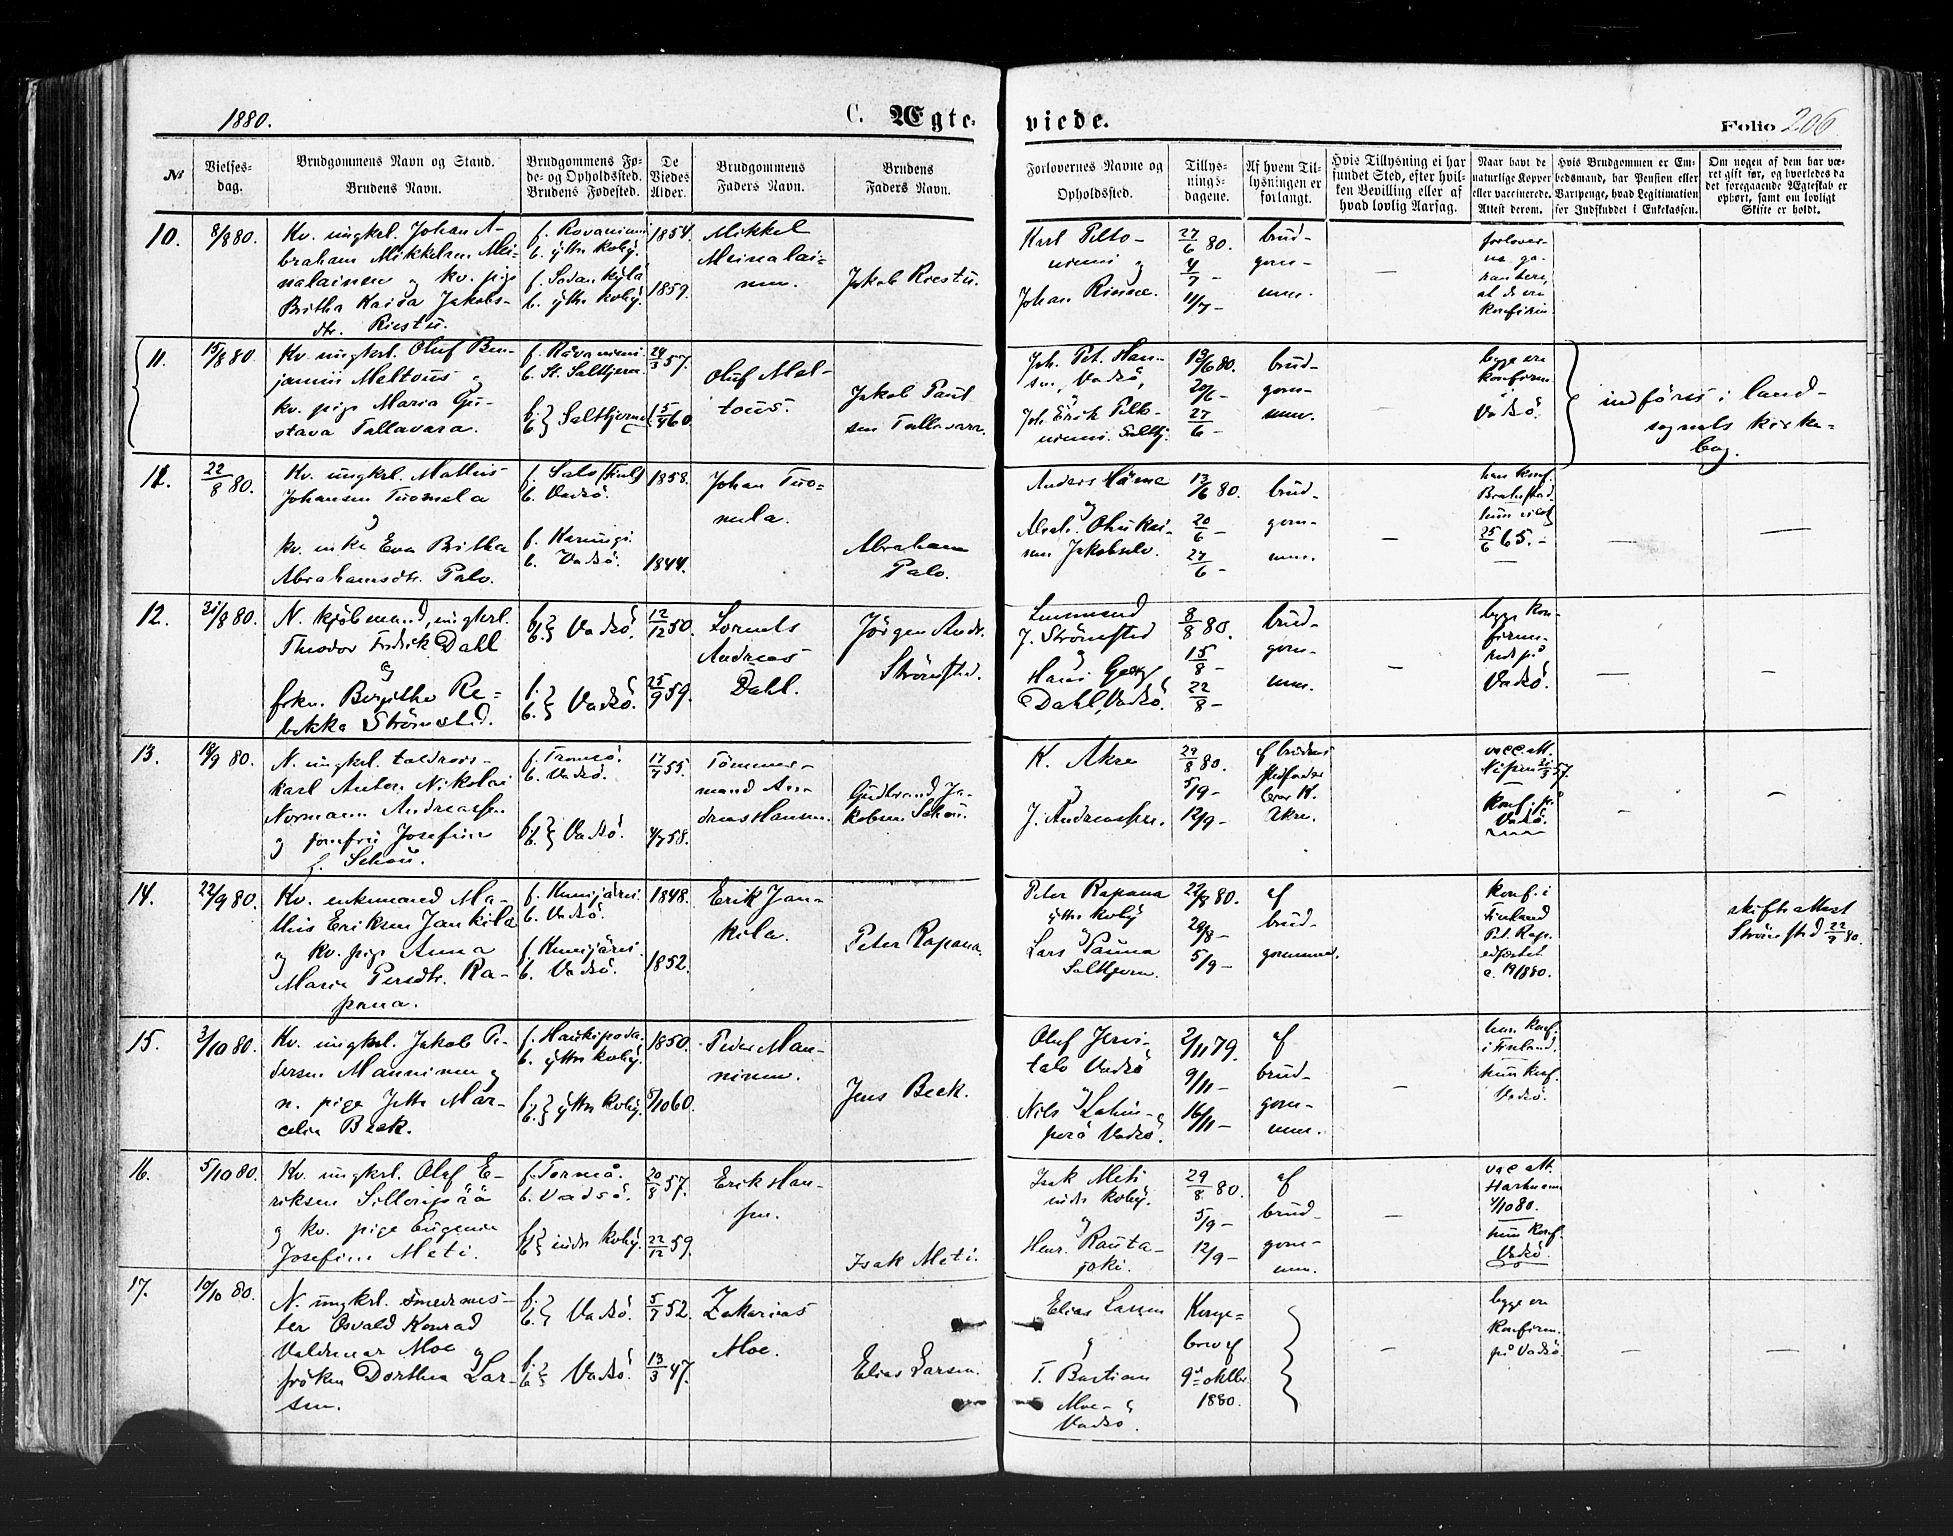 1880.
C. Ægte-
viede.
Folio 206
№
Vielses-
dag.
Brudgommens Navn og Stand.
Brudens Navn.
Brudgommens Fø-
de- og Opholdssted.
Brudens Fødested.
De
Viedes
Alder.
Brudgommens
Faders Navn.
Brudens
Faders Navn.
Forlovernes Navne og
Opholdssted.
Tillys-
nings-
dagene.
Af hvem Til-
lysningen er
forlangt.
Hvis Tillysning ei har
fundet Sted, efter hvil-
ken Bevilling eller af
hvad lovlig Aarsag.
Naar havt de
naturlige Kopper
eller vaccinerede.
Attest derom.
Hvis Brudgommen er Em-
bedsmand, har Pension eller
Vartpenge, hvad Legitimation
for Indskuddet i Enkekassen.
Om nogen af dem har væ-
ret gift før, og hvorledes da
det foregaaende Ægteskab er
ophørt, samt om lovligt
Skifte er holdt.
10.
8/8 80.
Kv. ungkrl. Johan A-
braham Mikkelsen Mei-
nalainen og kv. pige
Britha Kaisa Jakobs-
dtr. Riestu.
f. Rovaniemi
b. yttre Koby.
f. Sodankylä
b. yttre Koby.
1854.
1859.
Mikkel
Meinalai-
nen.
Jakob Riestu.
Karl Pelto-
niemi og
Johan Rinne.
27/6 80.
4/7 -
11/7 -
brud-
gom-
men.
-
forlover-
ne ga-
rantere,
at de ere
konfirm.
11.
15/8 80.
Kv. ungkrl. Oluf Ben-
jamin Meltous og
kv. pige Maria Gu-
stava Tallavara.
f. Rovaniemi.
b. St. Saltkjern.
f. b. } Saltkjerne
24/3 57.
5/4 60.
Oluf Mel-
tous.
Jakob Paul
sen Tallavara.
Joh. Pet. Han-
sen, Vadsö,
Joh. Erik Pelto-
niemi. Saltkj.
13/6 80.
20/6 -
27/6 -
brud-
gom-
men.
-
begge ere
konfirm.
i
Vadsö.
indføres i land-
sognets kirke-
bog.
12.
22/8 80.
Kv. ungkrl. Mathis
Johansen Tuomela
og
kv. enke Eva Britha
Abrahamsdtr. Palo.
f. Salo (Finl)
b. Vadsö.
f. Karungi.
b. Vadsö.
1858.
1844.
Johan Tuo-
mela.
Abraham
Palo.
Anders Häme
og
Abrah. Olukai-
nen Jakobselv.
13/6 80.
20/6 -
27/6 -
brud-
gom-
men.
-
han konf.
Brahestad
25/6 65. -
-
-
12.
31/8 80.
N. kjøbmand, ungkrl.
Theodor Fredrik Dahl
og
frkn. Bergithe Re-
bekka Strömsted.
f. b. } Vadsö.
f. b. } Vadsö.
12/12 50.
25/9 59.
Lorents
Andreas
Dahl.
Jörgen Andr.
Strömsted.
Lensmand
J. Strömsted
og
Hans Georg
Dahl, Vadsö.
8/8 80.
15/8 -
22/8 -
brud-
gom-
men.
-
begge kon-
firme-
rede på
Vadsö.
-
-
13.
18/9 80.
N. ungkrl. toldrors-
karl Anton Nikolai
Normann Andreassen
og jomfru Josefine
f. Schou.
f. Tromsö.
b. Vadsö.
f. b. } Vadsö.
17/7 55.
4/7 58.
Tömmer-
mand An-
dreas Hansen.
Gudbrand Ja-
kobsen Schou.
K. Akre
og
J. Andreassen.
29/8 80.
5/9 -
12/9 -
af brudens
stedfader
K.
Akre.
vacc. att.
Konf. på
Vadsö.
-
-
14.
22/9 80.
Kv. enkemand Ma-
this Eriksen Jankila
og kv. pige Anna
Maria Persdtr. Ra-
pana.
f. Kemijärvi.
b. Vadsö.
f. Kemijärvi.
b. Vadsö.
1848.
1852.
Erik Jan-
kila.
Peter Rapana.
Peter Rapana
yttre Koby
og
Lars Pauna
Saltkjern.
22/8 80.
29/8 -
5/9 -
af
brud-
gommen.
konf. i
Finland
Pet. Rap.
edfæstet
a. 19/1880.
skifteattest
Strömsted 22/9 80.
15.
3/10 80.
Kv. ungkrl. Jakob Pe-
dersen Manninen og
n. pige Jette Mar-
celie Beck.
f. Haukipoda.
b. yttre Koby.
f. b. } yttre Koby.
1850.
8/10 60.
Peder Man-
ninen.
Jens Beck.
Oluf Jervi-
talo Vadsö
og
Nils Lahen-
perä Vadsö.
2/11 79.
9/11 -
16/11 -
af
brud-
gom-
men.
-
han konf.
i Finland.
hun konf.
Vadsö.
16.
5/10 80.
Kv. ungkrl. Olof E-
riksen Sillengsää
og kv. pige Eugenie
Josefine Meti.
f. Torneå.
b. Vadsö.
f. b. } indre Koby.
20/8 57.
22/12 59.
Erik Han-
sen.
Isak Meti.
Isak Meti
indre Koby.
og
Henr. Rauta-
joki.
29/8 80.
5/9 -
12/9 -
af
brud-
gom-
men.
-
vac att.
4/10 80.
hun konf.
Vadsö.
17.
10/10 80.
N. ungkrl. smedmes-
ter Osvald Konrad
Valdemar Moe og
fröken Dorthea Lar-
sen.
f. b. } Vadsö.
f. b. } Vadsö.
5/7 52.
13/3 47.
Zakarias
Moe.
Elias Larsen.
Elias Larsen
og
T. Bastian
Moe
Vadsö.
Konge-
brev af
9de oktbr.
1880.
-
begge ere
konfirm.
på Vadsö.
-